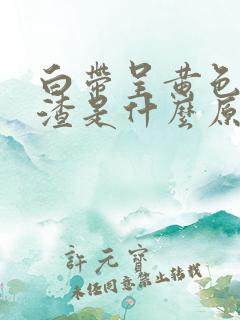 白帶呈黃色
渣是什麼原
許元寶
未經同意禁止轉載